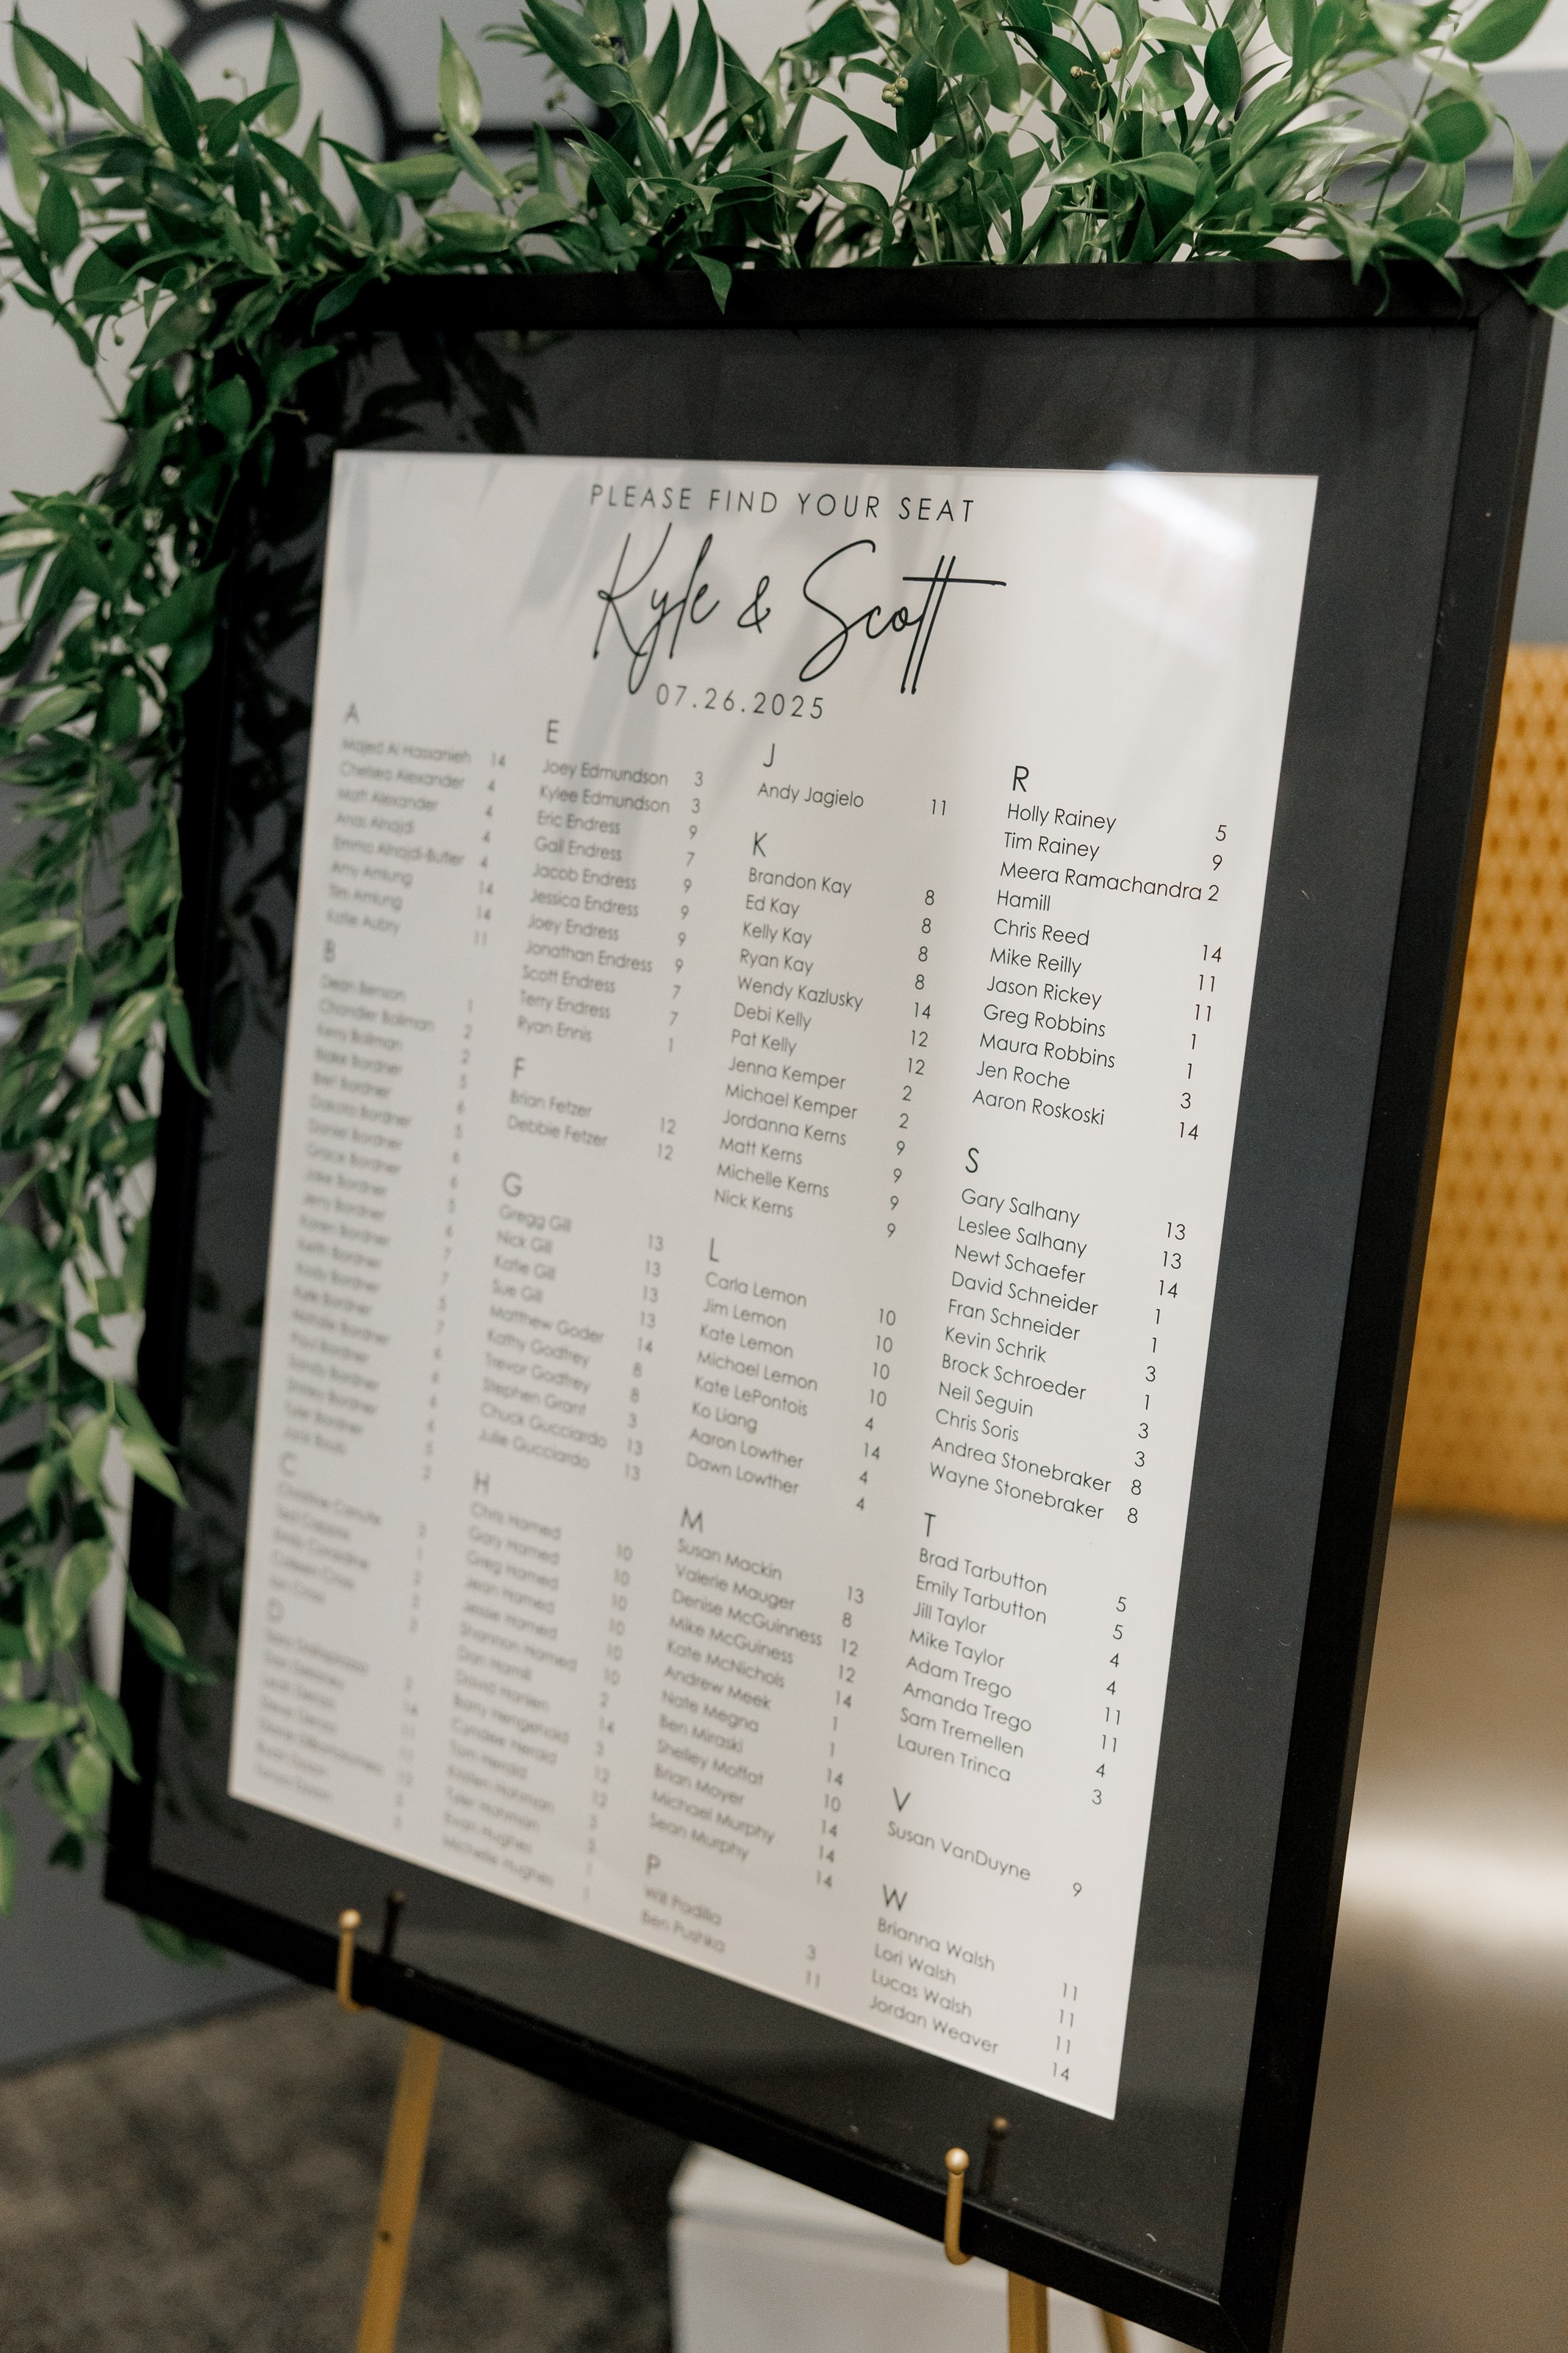 PLEASE FIND YOUR SEAT
Kyle & Scott
07.26.2025
A
Majed Al Hassanieh 14
Chelsea Alexander 4
Matt Alexander 4
Anas Alnajdi 4
Emma Alnajdi-Butler 4
Amy Amlung 14
Tim Amlung 14
Katie Aubry 11
B
Dean Benson 1
Chandler Bollman 2
Kerry Bollman 2
Blake Bordner 5
Ben Bordner 6
Dakota Bordner 5
Daniel Bordner 6
Grace Bordner 6
Jake Bordner 5
Jerry Bordner 6
Karen Bordner 7
Keith Bordner 7
Kelly Bordner 5
Kyle Bordner 7
Natalie Bordner 6
Paul Bordner 6
Sandy Bordner 6
Shirley Bordner 6
Tyler Bordner 5
C
D
E
Joey Edmundson 3
Kylee Edmundson 3
Eric Endress 9
Gail Endress 7
Jacob Endress 9
Jessica Endress 9
Joey Endress 9
Jonathan Endress 9
Scott Endress 7
Terry Endress 7
Ryan Ennis 1
F
Brian Fetzer 12
Debbie Fetzer 12
G
Gregg Gill 13
Nick Gill 13
Katie Gill 13
Sue Gill 13
Matthew Goder 14
Kathy Godfrey 8
Trevor Godfrey 8
Stephen Grant 3
Chuck Gucciardo 13
Julie Gucciardo 13
H
Chris Hamed 10
Gary Hamed 10
Greg Hamed 10
Jean Hamed 10
Jessie Hamed 10
Shannon Hamed 10
Dan Hamill 2
David Hansen 14
Barry Hengehold 3
Cyndee Herald 12
Tom Herald 12
Kristen Hohman 3
Tyler Hohman 3
Evan Hughes 1
Michelle Hughes 1
J
Andy Jagielo 11
K
Brandon Kay 8
Ed Kay 8
Kelly Kay 8
Ryan Kay 8
Wendy Kazlusky 14
Debi Kelly 12
Pat Kelly 12
Jenna Kemper 2
Michael Kemper 2
Jordanna Kerns 9
Matt Kerns 9
Michelle Kerns 9
Nick Kerns 9
L
Carla Lemon 10
Jim Lemon 10
Kate Lemon 10
Michael Lemon 10
Kate LePontois 4
Ko Liang 14
Aaron Lowther 4
Dawn Lowther 4
M
Susan Mackin 13
Valerie Mauger 8
Denise McGuinness 12
Mike McGuiness 12
Kate McNichols 14
Andrew Meek 1
Nate Megna 1
Ben Miraski 14
Shelley Moffat 10
Brian Moyer 14
Michael Murphy 14
Sean Murphy 14
P
Will Padilla 3
Ben Pushka 11
R
Holly Rainey 5
Tim Rainey 9
Meera Ramachandra 2
Hamill
Chris Reed 14
Mike Reilly 11
Jason Rickey 11
Greg Robbins 1
Maura Robbins 1
Jen Roche 3
Aaron Roskoski 14
S
Gary Salhany 13
Leslee Salhany 13
Newt Schaefer 14
David Schneider 1
Fran Schneider 1
Kevin Schrik 3
Brock Schroeder 1
Neil Seguin 3
Chris Soris 3
Andrea Stonebraker 8
Wayne Stonebraker 8
T
Brad Tarbutton 5
Emily Tarbutton 5
Jill Taylor 4
Mike Taylor 4
Adam Trego 11
Amanda Trego 11
Sam Tremellen 4
Lauren Trinca 3
V
Susan VanDuyne 9
W
Brianna Walsh 11
Lori Walsh 11
Lucas Walsh 11
Jordan Weaver 14